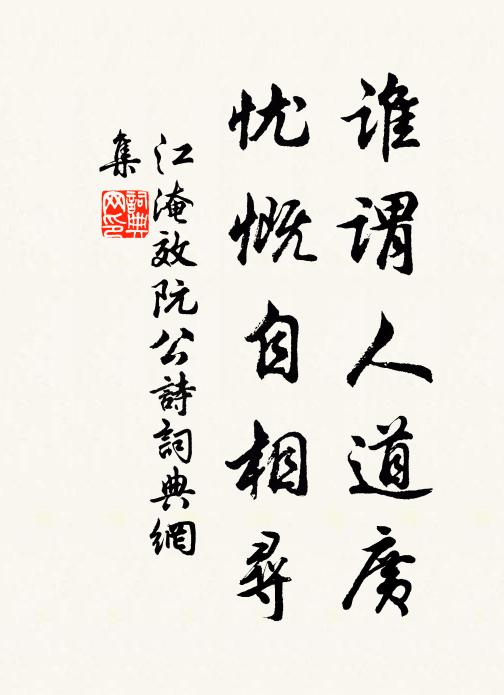 誰謂人道廣
忧慨自相尋
江淹效阮公詩詞典網
集
詞典
网印